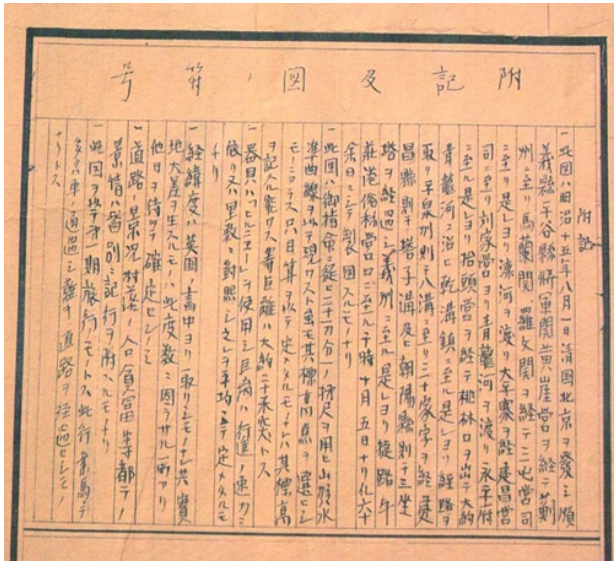 附記及図ノ符号
附記
一此図ハ明治十五年八月一日清国北京ヲ發シ順
義縣平谷縣將軍関黄崖営口ヲ経テ薊
州ニ至リ馬蘭関、羅文関ヲ経テ三屯営司
ニ至リ是レヨリ濠河ヲ渡リ大平寨ヲ経建昌営
司ニ至リ刘家営口ヨリ青龍河ヲ渡リ永平府
ニ至ル是レヨリ抬頭営ヲ経テ桃林口ヲ出テ大約
青龍河ニ沿ヒ乾溝鎮ニ至ル是レヨリ経路ヲ
取リ平泉州則チ八溝ニ至リ二十家字ヲ経建
昌縣則チ塔子溝及ヒ朝陽縣則チ三坐
塔ヲ経過シ義州ニ至ル是レヨリ捷路牛
莊港俗称営口ニ至ル于時十月五日ナリ仍六十
余日ニシテ製図スルモノナリ
一此図ハ御指命ニ従ヒ二十万分一ノ梯尺ヲ用ヒ山形水
準曲線ヲ以テ現ワスト虽モ其標高点ヲ選ヒシ
モノニアラス只目算ヲ以テ定メタルモノナレハ其標高
ヲ記スル能ワス壽巨離ハ大約二十米突トス
一器具ハ ヲ使用シ巨离ハ行進ノ速力ニ
依リ又ハ里数ニ對照シ之ヲ平均シテ定メタルモ
ナリ
一経緯度ハ英国ノ書中ヨリ取リシモノナレ共實
地大差ヲ生スルモノハ此度数ニ因ラサル所アリ
他日ヲ待ツテ確定センノミ
一道路ノ景況村落ノ人口貧富等都テノ
景情ハ畧別ニ記行ヲ附スルモノトス
一此図ヲ以テ第一期旅行ノモノトス此行乗馬テ
車ノ通過シ難キ道路ヲ経過セシモノ
ナリトス